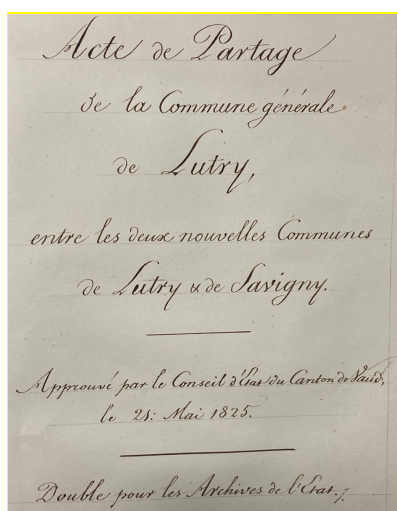 Acte de Partage
de la Commune générale
de Lutry,
entre les deux nouvelles Communes
de Lutry & de Savigny.
Approuvé par le Conseil d'Etat du Canton de Vaud,
le 21: Mai 1825.
Double pour les Archives de l'Etat./.